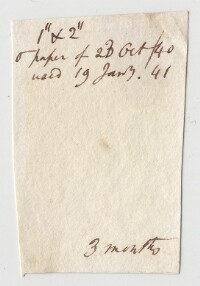 1" & 2"
paper of 2D Oct/40
used 19 Jany. 41
3 months